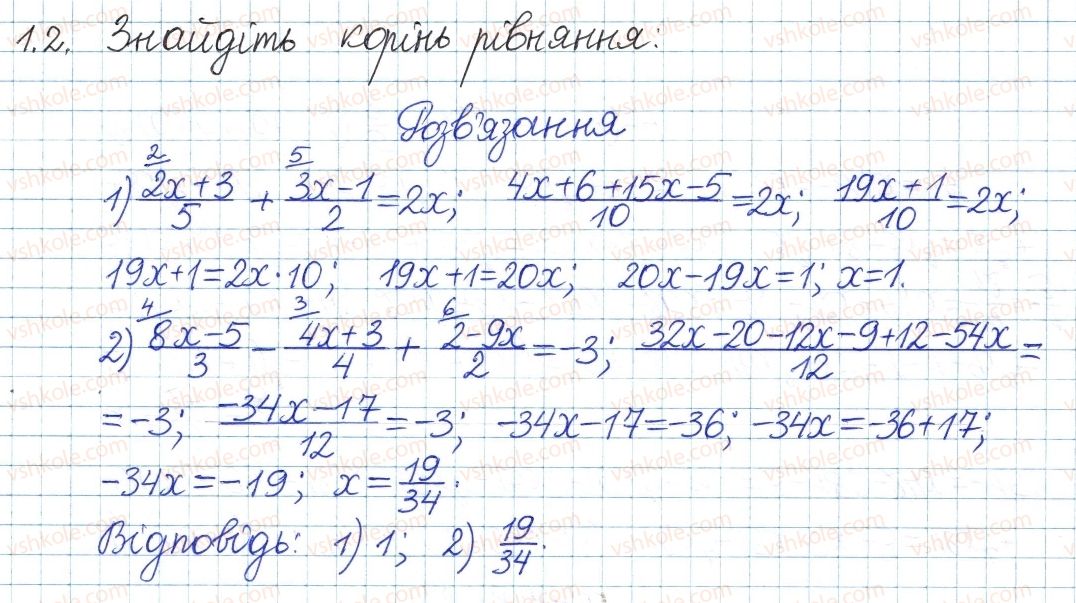 1.2. Знайдіть корінь рівняння:
Розв'язання
1) (2x+3)/5 (2 + (3x-1)/2 (5 = 2x; (4x+6+15x-5)/10 = 2x; (19x+1)/10 = 2x;
19x+1=2x·10; 19x+1=20x; 20x-19x=1; x=1.
2) (8x-5)/3 (4 - (4x+3)/4 (3 + (2-9x)/2 (6 = -3; (32x-20-12x-9+12-54x)/12 =
= -3; (-34x-17)/12 = -3; -34x-17=-36; -34x=-36+17;
-34x=-19; x=19/34.
Відповідь: 1) 1; 2) 19/34.